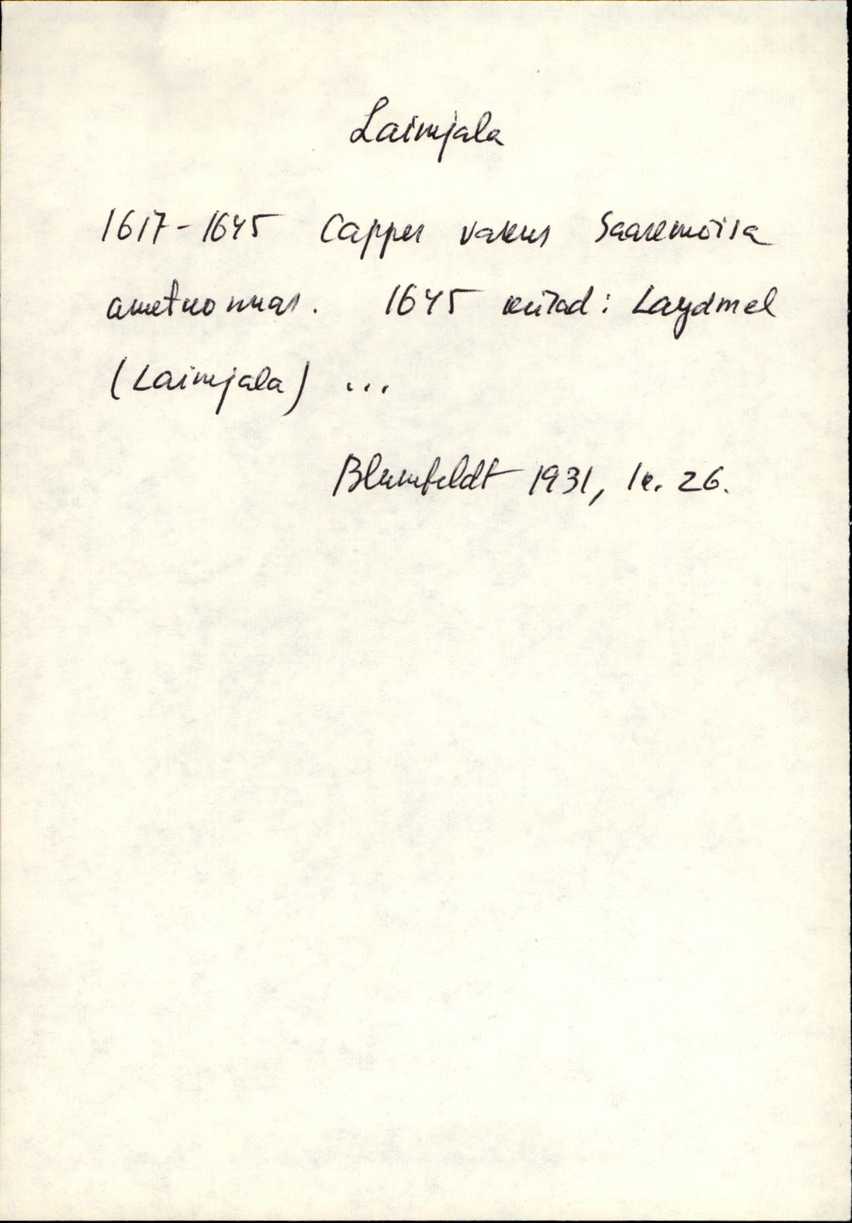 Laimjala
1617-1645 Capper vakus Saaremõisa
ametkonnas. 1645 külad: Laydmel
(Laimjala) ...
Blumfeldt 1931, lk. 26.